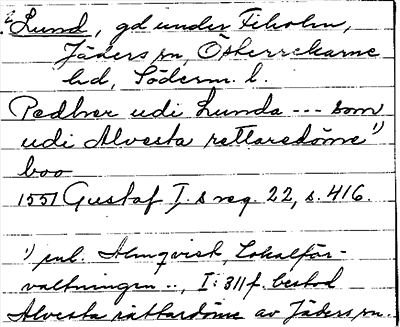 2) Lund, gd under Fiholm,
Jäders sn, Österrekarne
hd, Söderm. l.
Pedher udi Lunda --- som
udi Alvesta rettaredöme 1)
boo
1551 Gustaf I.s reg. 22, s. 416.
1) enl. Almqvist, Lokalför-
valtningen .., I: 311 f. bestod
Alvesta rättardöme av Jäders sn.